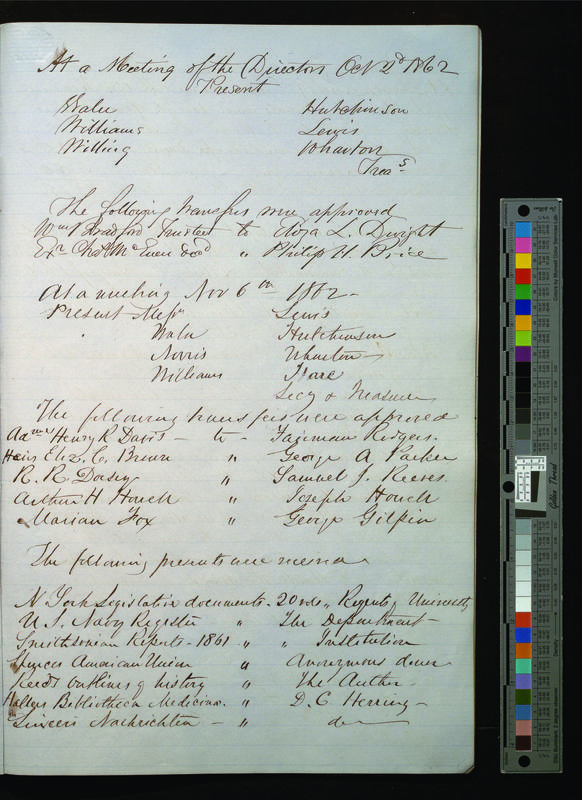 At a Meeting of the Directors Oct 2d 1862
Present
Waln Hutchinson
Williams Lewis
Willing Wharton
Treas
The following transfers were approved
Wm Bradford Trustee to Eliza L. Dwight
Exr Chas Mc Euen decd " Philip H. Price
At a meeting Nov 6th 1862 -
Present Messrs Lewis
Waln Hutchinson
Norris Wharton
Williams
Secy & Treasurer
The following transfers were approved
Admr Henry R Davis - to - Rodgers.
Heirs Eliz. C. Brown " George A Parker
R. R. Dorsey " Samuel J. Reeves.
Arthur H Howell " Joseph Howell
Marian Fox " George Gilpin
The following presents were received
N York Legislative documents. 20 vols " Regents University
U. S. Navy Register " The Department -
Smithsonian Reports - 1861 " " Institution
Spences American Union " Anonymous donor
Reeds outlines of history " The Author
Hallers Bibliotheca Medicinae. " D. C. Herring -
Sinceri Nachrichten - " do